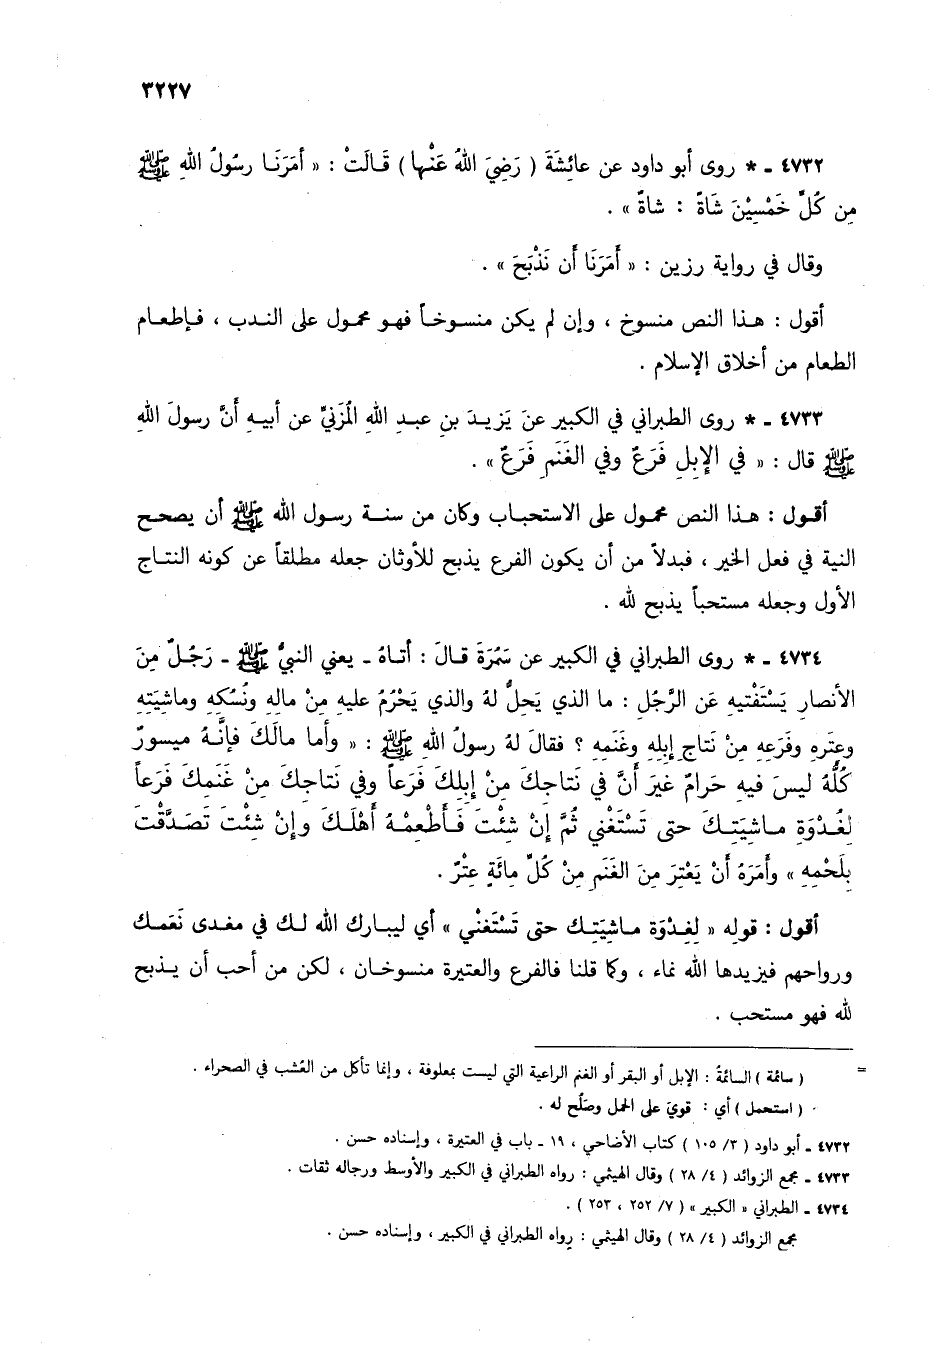 ٣٢٢٧
٤٧٣٢ ـ * روى أبو داود عن عائِشَةَ ( رَضِيَ اللهُ عَنْها ) قَالَتْ : « أمَرَنَا رسُولُ اللهِ ﷺ
مِن كُلِّ خَمْسِيْنَ شَاةً : شاةً » .
وقال في رواية رزين : « أَمَرَنَا أَن نَذْبَحَ » .
أقول : هذا النص منسوخ ، وإن لم يكن منسوخاً فهو محمول على الندب ، فإطعام
الطعام من أخلاق الإسلام .
٤٧٣٣ ـ * روى الطبراني في الكبير عنَ يَزيدَ بنِ عبدِ اللهِ المُزَنيِّ عن أبيهِ أَنَّ رسولَ اللهِ
ﷺ قال : « في الإبلِ فَرَعٌ وفي الغَنَمِ فَرَعٌ » .
أقول : هذا النص محمول على الاستحباب وكان من سنة رسول الله ﷺ أن يصحح
النية في فعل الخير ، فبدلاً من أن يكون الفرع يذبح للأوثان جعله مطلقاً عن كونه النتاج
الأول وجعله مستحباً يذبح لله .
٤٧٣٤ ـ * روى الطبراني في الكبير عن سَمُرَةَ قالَ : أتاهُ ـ يعني النبيُّ ﷺ ـ رَجُلٌ مِنَ
الأنصارِ يَسْتَفْتيهِ عَنِ الرَّجُلِ : ما الذي يَحِلُّ لهُ والذي يَحْرُمُ عليهِ مِنْ مالِهِ ونُسُكِهِ وماشِيَتِهِ
وعِتَرِهِ وفَرَعِهِ مِنْ نَتاجِ إبِلِهِ وغَنَمِهِ ؟ فقالَ لهُ رسولُ اللهِ ﷺ : « وأما مالَكَ فإنَّهُ ميسورٌ
كُلُّهُ ليسَ فيهِ حَرامٌ غيرَ أنَّ في نَتاجِكَ مِنْ إبِلِكَ فَرَعاً وفي نَتاجِكَ مِنْ غَنَمِكَ فَرَعاً
لِغُدْوَةِ ماشِيَتِكَ حتى تَسْتَغْني ثُمَّ إنْ شِئْتَ فَأَطْعِمْهُ أَهْلَكَ وإنْ شِئْتَ تَصَدَّقْتَ
بِلَحْمِهِ » وأَمَرَهُ أَنْ يَعْتِرَ مِنَ الغَنَمِ مِنْ كُلِّ مِائَةٍ عِتْرٌ .
أقول : قوله « لِغِدْوَة ماشِيَتِك حتى تَسْتَغني » أي ليبارك الله لك في مغدى نَعَمك
ورواحهم فيزيدها الله نماء ، وكما قلنا فالفرع والعتيرة منسوخان ، لكن من أحب أن يذبح
لله فهو مستحب .
= ( سائمة ) السائمةُ : الإبل أو البقر أو الغنم الراعية التي ليست بمعلوفة ، وإنما تأكل من العُشب في الصحراء .
( استحمل ) أي : قويَ على الحمل وصَلُح له .
٤٧٣٢ ـ أبو داود ( ٣/ ١٠٥ ) كتاب الأضاحي ، ١٩ ـ باب في العتيرة ، وإسناده حسن .
٤٧٣٣ ـ مجمع الزوائد ( ٤/ ٢٨ ) وقال الهيثمي : رواه الطبراني في الكبير والأوسط ورجاله ثقات .
٤٧٣٤ ـ الطبراني « الكبير » ( ٧/ ٢٥٢ ، ٢٥٣ ) .
مجمع الزوائد ( ٤/ ٢٨ ) وقال الهيثمي : رواه الطبراني في الكبير ، وإسناده حسن .